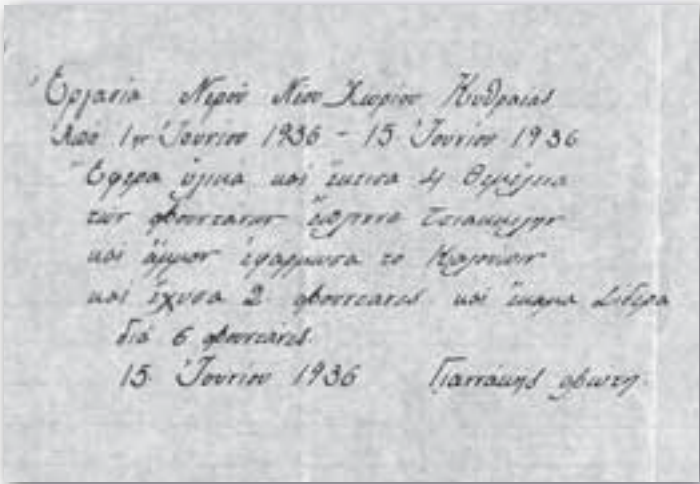 Ἐργασία Νερού Νέου Χωρίου Κυθραίας
Ἀπό 1ην Ἰουνίου 1936 - 15 Ἰουνίου 1936
Ἔφερα ὑλικά και ἔκτισα 4 θεμέλια
των φουντανων ἔσπασα τσιακκιλην
και ἄμμον ἐφάρμωσα το καλούπιν
και ἔχυσα 2 φουντανες και ἔκαμα σίδερα
διά 6 φουντάνες.
15 Ἰουνίου 1936 Γιαννάκης Φωτη.